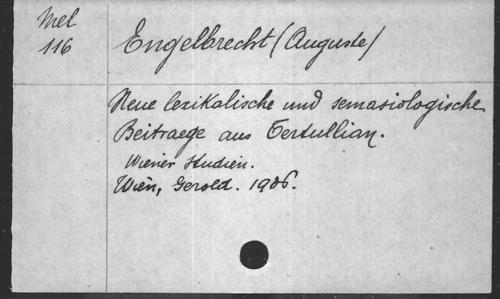 Mel
116
Engelbrecht (Auguste)
Neue lexikalische und semasiologische
Beitraege aus Tertullian.
Wiener Studien.
Wien, Gerold. 1906.